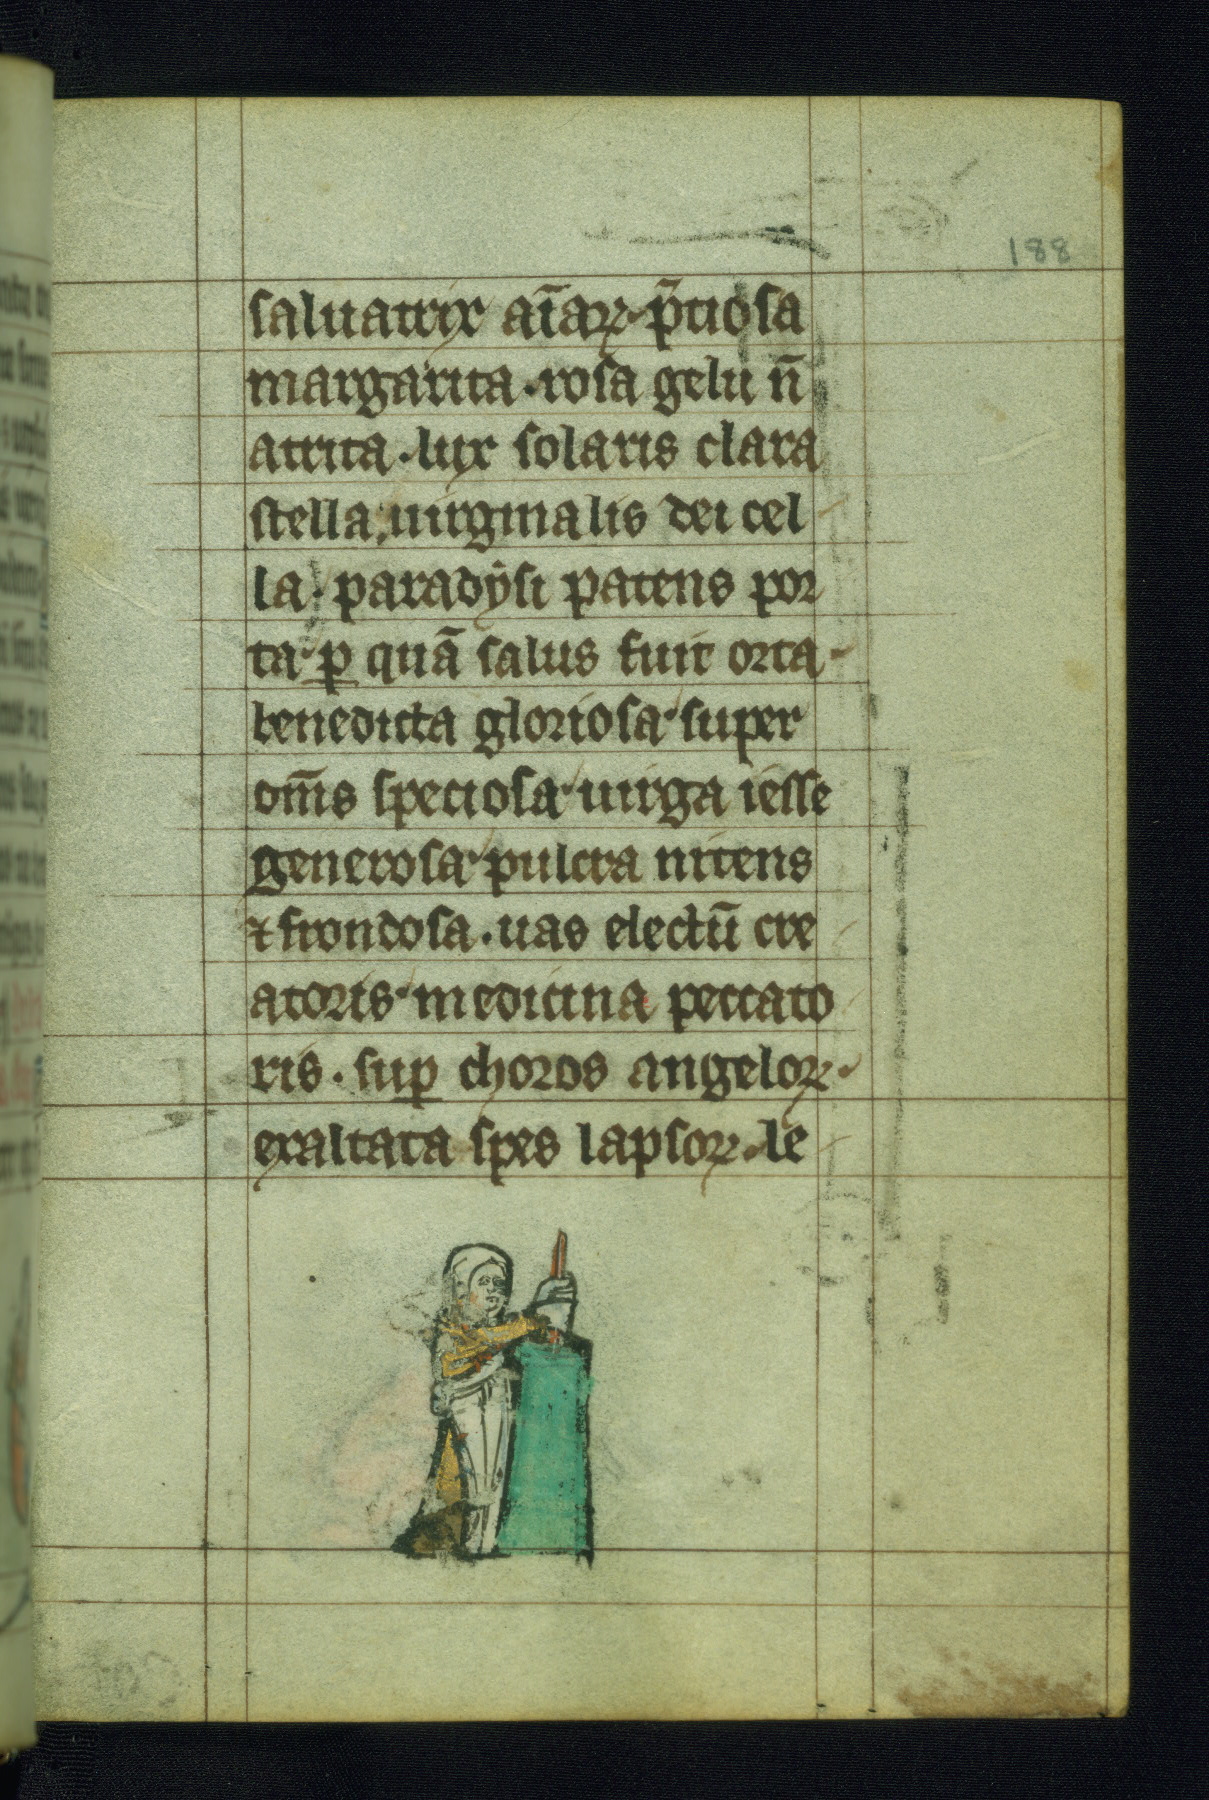 188
saluatrix aīaꝝ· p̄tiosa
margarita · rosa gelu n̄
attrita · lux solaris clara
stella, uirginalis dei cel
la · paradẏsi patens por
ta· ꝑ quā salus fuit orta·
benedicta gloriosa· super
om̄s speciosa· uirga iesse
generosa· pulcra nitens
⁊ frondosa · uas electū cre
atoris· medicina peccato
ris · suꝑ choros angeloꝝ·
exaltata spes lapsoꝝ · le